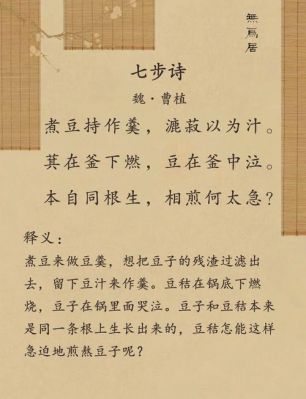 無為居
七步诗
魏·曹植
煮豆持作羹，漉菽以为汁。
萁在釜下燃，豆在釜中泣。
本自同根生，相煎何太急？
释义：
煮豆来做豆羹，想把豆子的残渣过滤出
去，留下豆汁来作羹。豆秸在锅底下燃
烧，豆子在锅里面哭泣。豆子和豆秸本来
是同一条根上生长出来的，豆秸怎能这样
急迫地煎熬豆子呢？